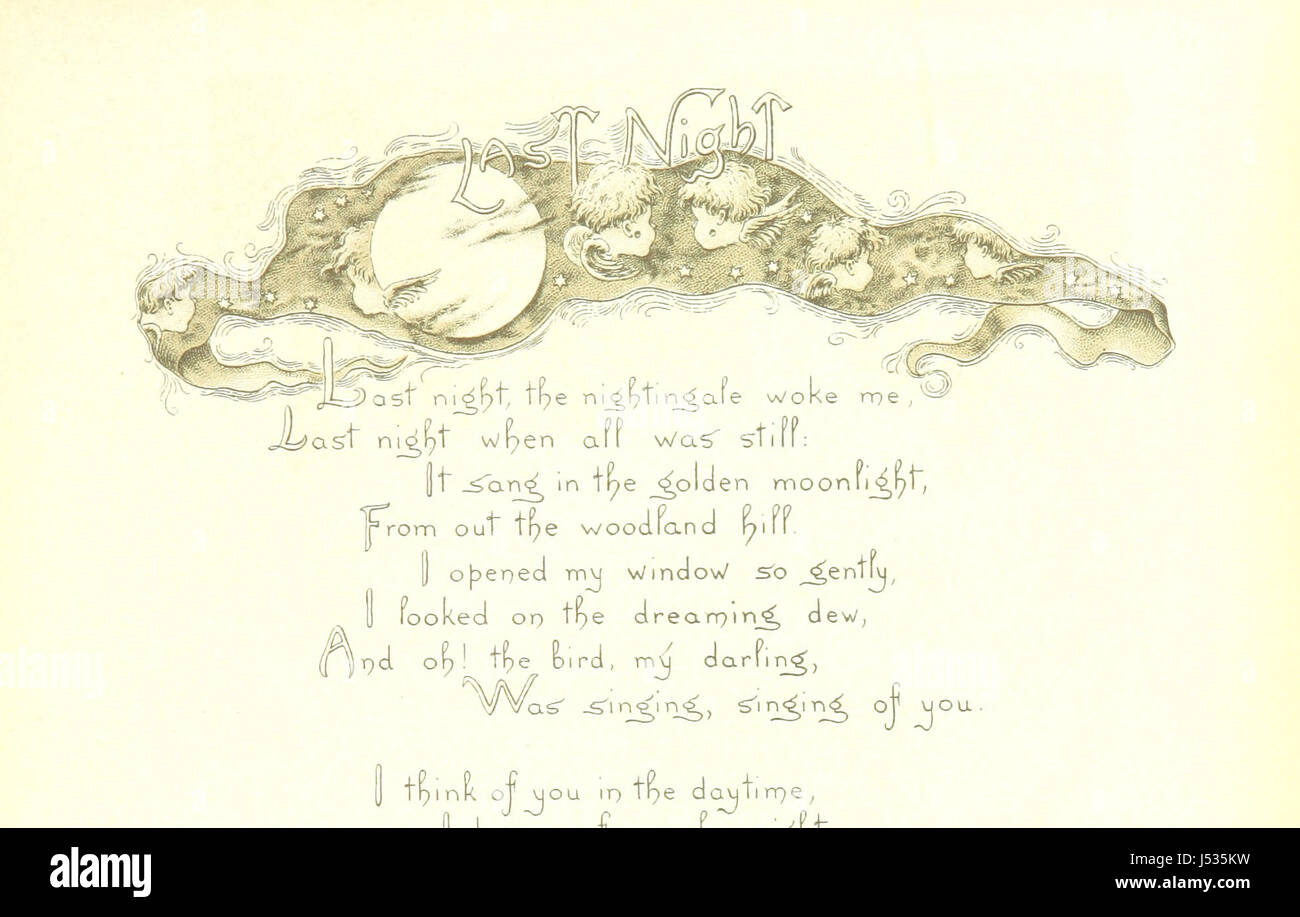 LAST NighT
Last night, the nightingale woke me,
Last night when all was still:
It sang in the golden moonlight,
From out the woodland hill.
I opened my window so gently,
I looked on the dreaming dew,
And oh! the bird, my darling,
Was singing, singing of you.
I think of you in the daytime,
alamy
alamy
Image ID: J535KW
www.alamy.com